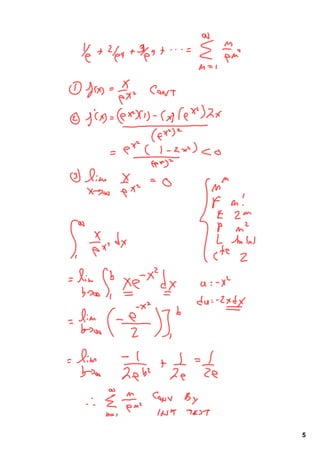 1/e + 2/e⁴ + 3/e⁹ + ··· = ∞ Σ n=1 n/eⁿ²
① f(x) = x/eˣ² CONT
② f'(x) = (eˣ²)(1) - (x)(eˣ²)2x / (eˣ²)²
= eˣ²(1 - 2x²) / (eˣ²)² < 0
③ lim x→∞ x/eˣ² = 0
nⁿ
F n!
E 2ⁿ
P n²
L ln(n)
cte 2
∫₁^∞ x/eˣ² dx
= lim b→∞ ∫₁ᵇ xe^-x² dx u = -x²
du = -2xdx
= lim b→∞ (-e^-x²/2)]₁ᵇ
= lim b→∞ -1/2e^b² + 1/2e = 1/2e
∴ ∞ Σ n=1 n/eⁿ² CONV BY
INT TEST
5